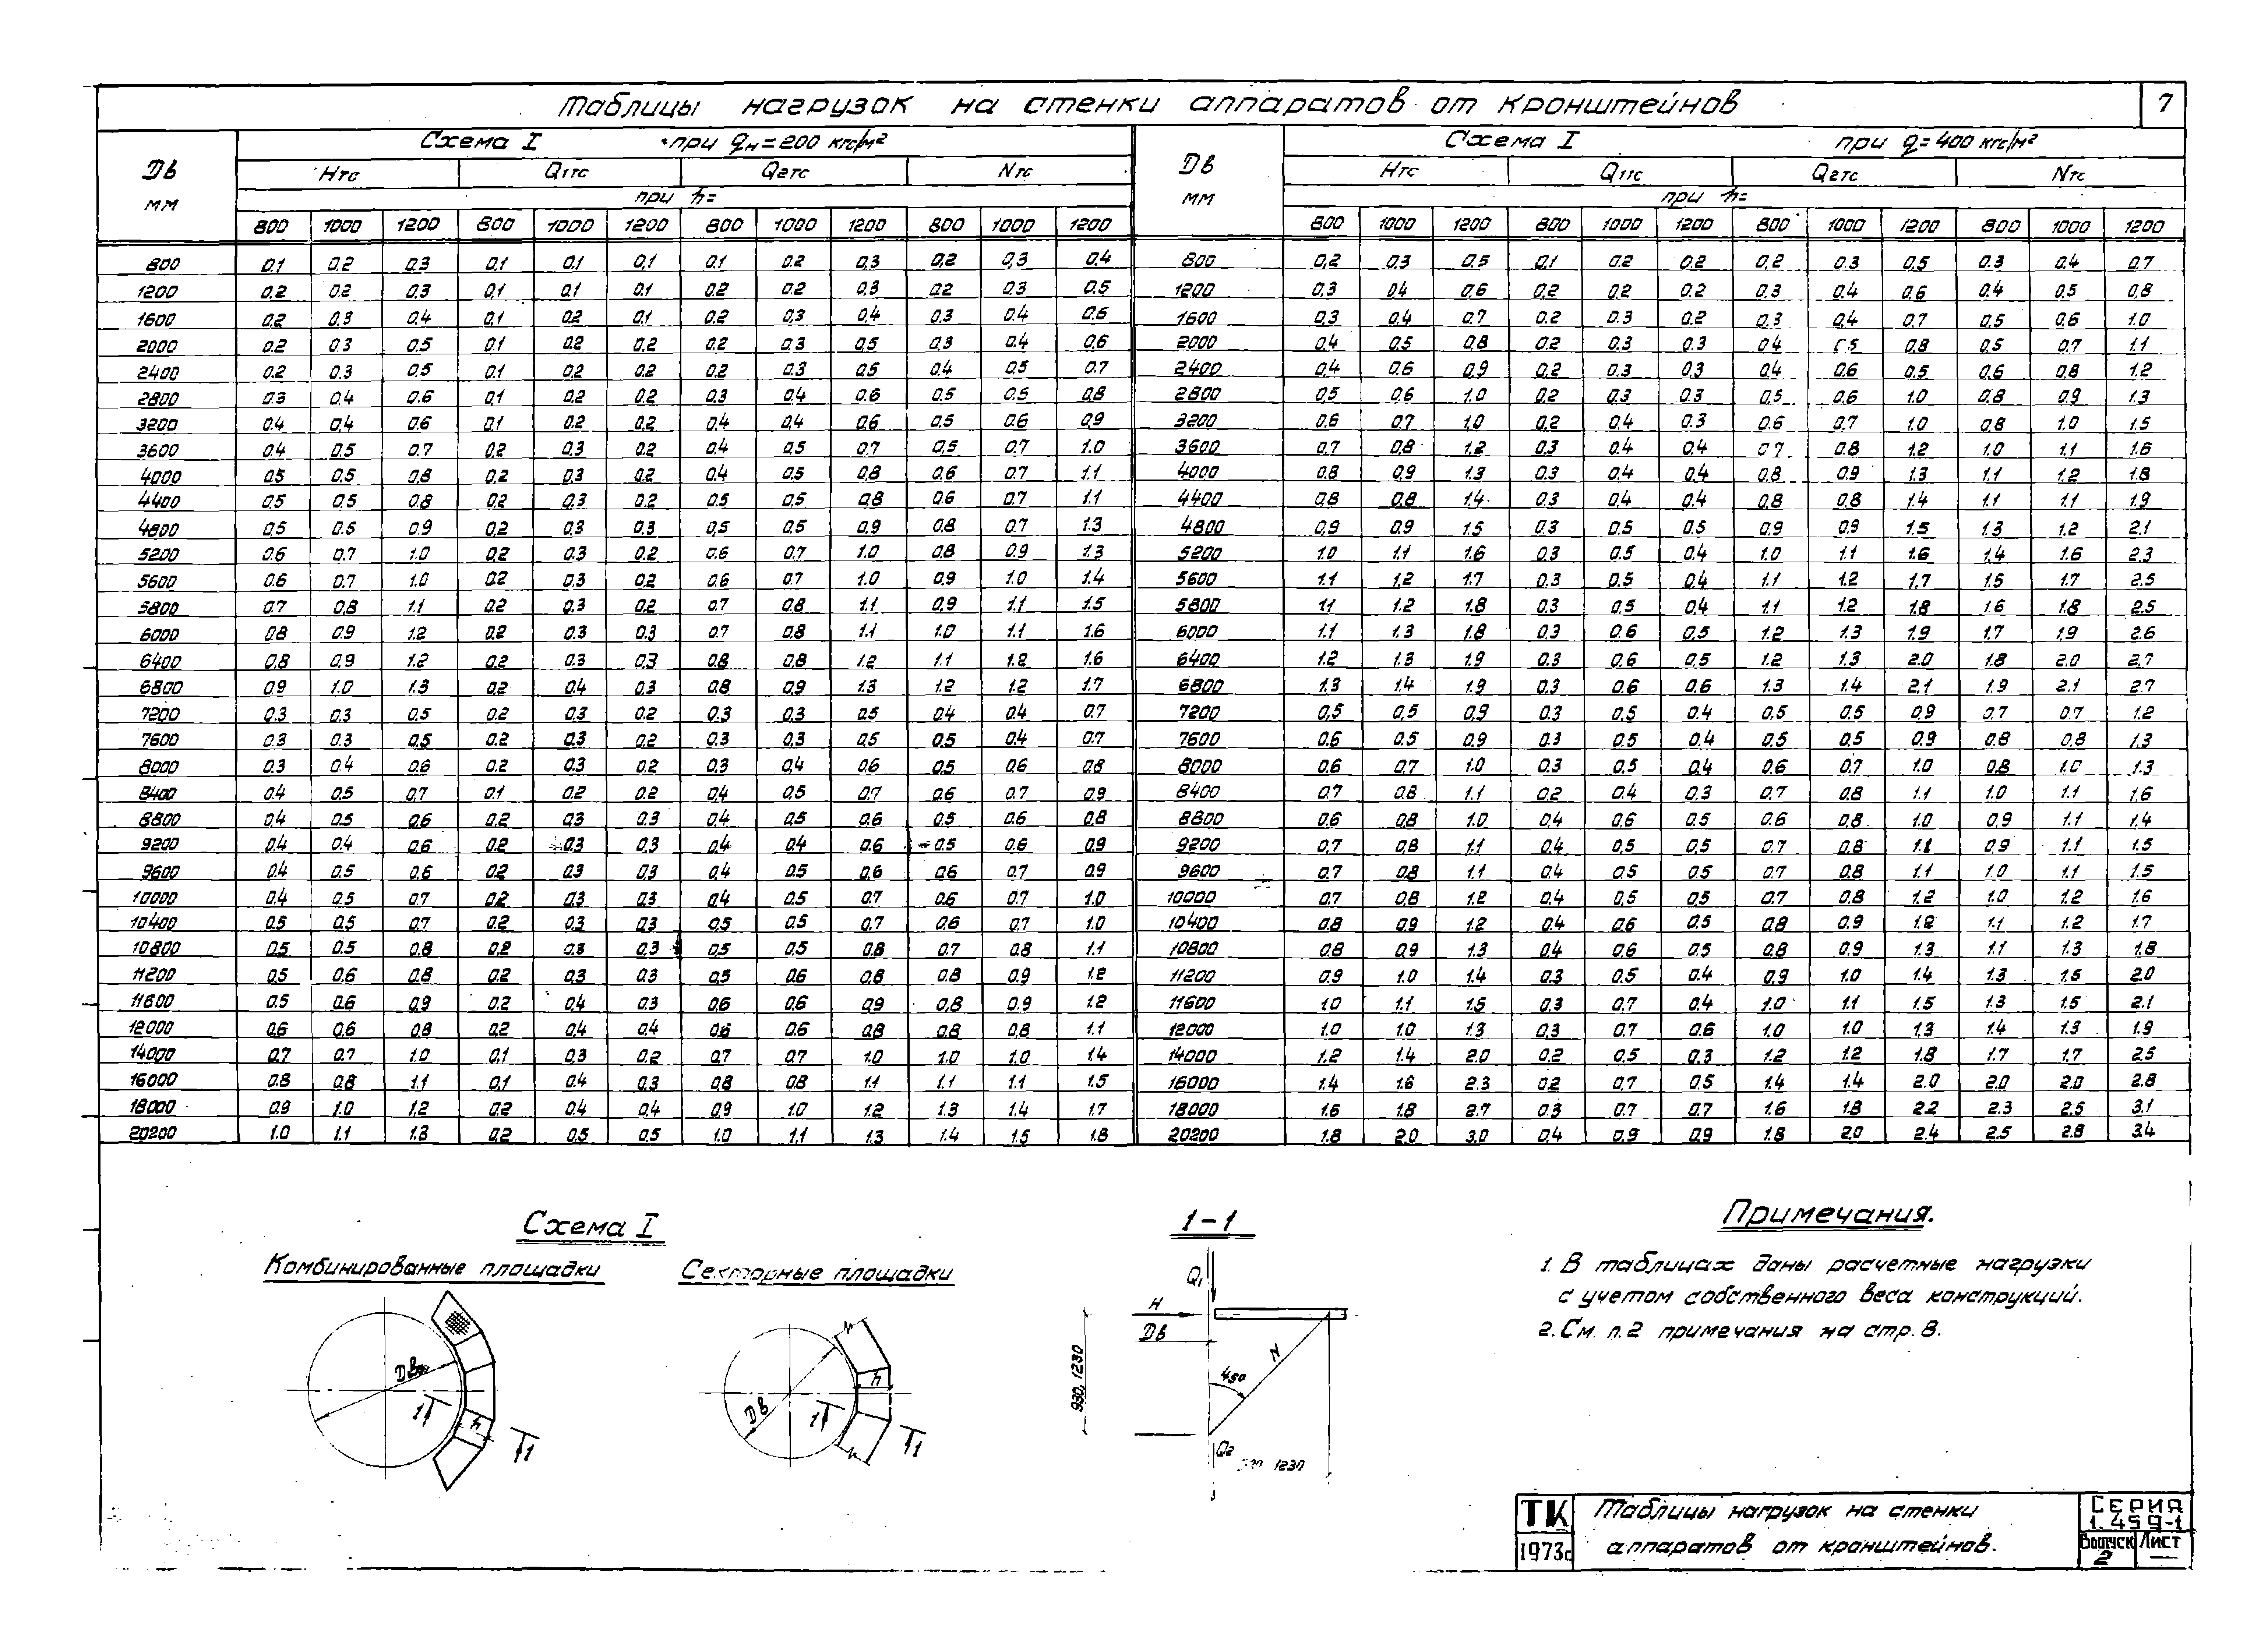 Таблицы нагрузок на стенки аппаратов от кронштейнов 7
Дв мм Схема I при qн=200 кгс/м² Дв мм Схема I при q=400 кгс/м²
Hтс Q1тс Q2тс Nтс Hтс Q1тс Q2тс Nтс
при h= при h=
800 1000 1200 800 1000 1200 800 1000 1200 800 1000 1200 800 1000 1200 800 1000 1200 800 1000 1200 800 1000 1200
800 0.1 0.2 0.3 0.1 0.1 0.1 0.1 0.2 0.3 0.2 0.3 0.4 800 0.2 0.3 0.5 0.1 0.2 0.2 0.2 0.3 0.5 0.3 0.4 0.7
1200 0.2 0.2 0.3 0.1 0.1 0.1 0.2 0.2 0.3 0.2 0.3 0.5 1200 0.3 0.4 0.6 0.2 0.2 0.2 0.3 0.4 0.6 0.4 0.5 0.8
1600 0.2 0.3 0.4 0.1 0.2 0.1 0.2 0.3 0.4 0.3 0.4 0.6 1600 0.3 0.4 0.7 0.2 0.3 0.2 0.3 0.4 0.7 0.5 0.6 1.0
2000 0.2 0.3 0.5 0.1 0.2 0.2 0.2 0.3 0.5 0.3 0.4 0.6 2000 0.4 0.5 0.8 0.2 0.3 0.3 0.4 0.5 0.8 0.5 0.7 1.1
2400 0.2 0.3 0.5 0.1 0.2 0.2 0.2 0.3 0.5 0.4 0.5 0.7 2400 0.4 0.6 0.9 0.2 0.3 0.3 0.4 0.6 0.5 0.6 0.8 1.2
2800 0.3 0.4 0.6 0.1 0.2 0.2 0.3 0.4 0.6 0.5 0.5 0.8 2800 0.5 0.6 1.0 0.2 0.3 0.3 0.5 0.6 1.0 0.8 0.9 1.3
3200 0.4 0.4 0.6 0.1 0.2 0.2 0.4 0.4 0.6 0.5 0.6 0.9 3200 0.6 0.7 1.0 0.2 0.4 0.3 0.6 0.7 1.0 0.8 1.0 1.5
3600 0.4 0.5 0.7 0.2 0.3 0.2 0.4 0.5 0.7 0.5 0.7 1.0 3600 0.7 0.8 1.2 0.3 0.4 0.4 0.7 0.8 1.2 1.0 1.1 1.6
4000 0.5 0.5 0.8 0.2 0.3 0.2 0.4 0.5 0.8 0.6 0.7 1.1 4000 0.8 0.9 1.3 0.3 0.4 0.4 0.8 0.9 1.3 1.1 1.2 1.8
4400 0.5 0.5 0.8 0.2 0.3 0.2 0.5 0.5 0.8 0.6 0.7 1.1 4400 0.8 0.8 1.4 0.3 0.4 0.4 0.8 0.8 1.4 1.1 1.1 1.9
4800 0.5 0.5 0.9 0.2 0.3 0.3 0.5 0.5 0.9 0.8 0.7 1.3 4800 0.9 0.9 1.5 0.3 0.5 0.5 0.9 0.9 1.5 1.3 1.2 2.1
5200 0.6 0.7 1.0 0.2 0.3 0.2 0.6 0.7 1.0 0.8 0.9 1.3 5200 1.0 1.1 1.6 0.3 0.5 0.4 1.0 1.1 1.6 1.4 1.6 2.3
5600 0.6 0.7 1.0 0.2 0.3 0.2 0.6 0.7 1.0 0.9 1.0 1.4 5600 1.1 1.2 1.7 0.3 0.5 0.4 1.1 1.2 1.7 1.5 1.7 2.5
5800 0.7 0.8 1.1 0.2 0.3 0.2 0.7 0.8 1.1 0.9 1.1 1.5 5800 1.1 1.2 1.8 0.3 0.5 0.4 1.1 1.2 1.8 1.6 1.8 2.5
6000 0.8 0.9 1.2 0.2 0.3 0.3 0.7 0.8 1.1 1.0 1.1 1.6 6000 1.1 1.3 1.8 0.3 0.6 0.5 1.2 1.3 1.9 1.7 1.9 2.6
6400 0.8 0.9 1.2 0.2 0.3 0.3 0.8 0.8 1.2 1.1 1.2 1.6 6400 1.2 1.3 1.9 0.3 0.6 0.5 1.2 1.3 2.0 1.8 2.0 2.7
6800 0.9 1.0 1.3 0.2 0.4 0.3 0.8 0.9 1.3 1.2 1.2 1.7 6800 1.3 1.4 1.9 0.3 0.6 0.6 1.3 1.4 2.1 1.9 2.1 2.7
7200 0.3 0.3 0.5 0.2 0.3 0.2 0.3 0.3 0.5 0.4 0.4 0.7 7200 0.5 0.5 0.9 0.3 0.5 0.4 0.5 0.5 0.9 0.7 0.7 1.2
7600 0.3 0.3 0.5 0.2 0.3 0.2 0.3 0.3 0.5 0.5 0.4 0.7 7600 0.6 0.5 0.9 0.3 0.5 0.4 0.5 0.5 0.9 0.8 0.8 1.3
8000 0.3 0.4 0.6 0.2 0.3 0.2 0.3 0.4 0.6 0.5 0.6 0.8 8000 0.6 0.7 1.0 0.3 0.5 0.4 0.6 0.7 1.0 0.8 1.0 1.3
8400 0.4 0.5 0.7 0.1 0.2 0.2 0.4 0.5 0.7 0.6 0.7 0.9 8400 0.7 0.8 1.1 0.2 0.4 0.3 0.7 0.8 1.1 1.0 1.1 1.6
8800 0.4 0.5 0.6 0.2 0.3 0.3 0.4 0.5 0.6 0.5 0.6 0.8 8800 0.6 0.8 1.0 0.4 0.6 0.5 0.6 0.8 1.0 0.9 1.1 1.4
9200 0.4 0.4 0.6 0.2 0.3 0.3 0.4 0.4 0.6 0.5 0.6 0.9 9200 0.7 0.8 1.1 0.4 0.5 0.5 0.7 0.8 1.1 0.9 1.1 1.5
9600 0.4 0.5 0.6 0.2 0.3 0.3 0.4 0.5 0.6 0.6 0.7 0.9 9600 0.7 0.8 1.1 0.4 0.5 0.5 0.7 0.8 1.1 1.0 1.1 1.5
10000 0.4 0.5 0.7 0.2 0.3 0.3 0.4 0.5 0.7 0.6 0.7 1.0 10000 0.7 0.8 1.2 0.4 0.5 0.5 0.7 0.8 1.2 1.0 1.2 1.6
10400 0.5 0.5 0.7 0.2 0.3 0.3 0.5 0.5 0.7 0.6 0.7 1.0 10400 0.8 0.9 1.2 0.4 0.6 0.5 0.8 0.9 1.2 1.1 1.2 1.7
10800 0.5 0.5 0.8 0.2 0.3 0.3 0.5 0.5 0.8 0.7 0.8 1.1 10800 0.8 0.9 1.3 0.4 0.6 0.5 0.8 0.9 1.3 1.1 1.3 1.8
11200 0.5 0.6 0.8 0.2 0.3 0.3 0.5 0.6 0.8 0.8 0.9 1.2 11200 0.9 1.0 1.4 0.3 0.5 0.4 0.9 1.0 1.4 1.3 1.5 2.0
11600 0.5 0.6 0.9 0.2 0.4 0.3 0.6 0.6 0.9 0.8 0.9 1.2 11600 1.0 1.1 1.5 0.3 0.7 0.4 1.0 1.1 1.5 1.3 1.5 2.1
12000 0.6 0.6 0.8 0.2 0.4 0.4 0.6 0.6 0.8 0.8 0.8 1.1 12000 1.0 1.0 1.3 0.3 0.7 0.6 1.0 1.0 1.3 1.4 1.3 1.9
14000 0.7 0.7 1.0 0.1 0.3 0.2 0.7 0.7 1.0 1.0 1.0 1.4 14000 1.2 1.4 2.0 0.2 0.5 0.3 1.2 1.2 1.8 1.7 1.7 2.5
16000 0.8 0.8 1.1 0.1 0.4 0.3 0.8 0.8 1.1 1.1 1.1 1.5 16000 1.4 1.6 2.3 0.2 0.7 0.5 1.4 1.4 2.0 2.0 2.0 2.8
18000 0.9 1.0 1.2 0.2 0.4 0.4 0.9 1.0 1.2 1.3 1.4 1.7 18000 1.6 1.8 2.7 0.3 0.7 0.7 1.6 1.8 2.2 2.3 2.5 3.1
20200 1.0 1.1 1.3 0.2 0.5 0.5 1.0 1.1 1.3 1.4 1.5 1.8 20200 1.8 2.0 3.0 0.4 0.9 0.9 1.8 2.0 2.4 2.5 2.8 3.4
Схема I
Комбинированные площадки
Дв
h
1 1
Секторные площадки
Дв
h
1 1
1-1
Q1
H
Дв
930, 1230
N
45°
Q2
1230
Примечания.
1. В таблицах даны расчетные нагрузки
с учетом собственного веса конструкций.
2. См. п.2 примечания на стр. 8.
ТК
1973г.
Таблицы нагрузок на стенки
аппаратов от кронштейнов.
Серия
1.459-1
Выпуск Лист
2 —